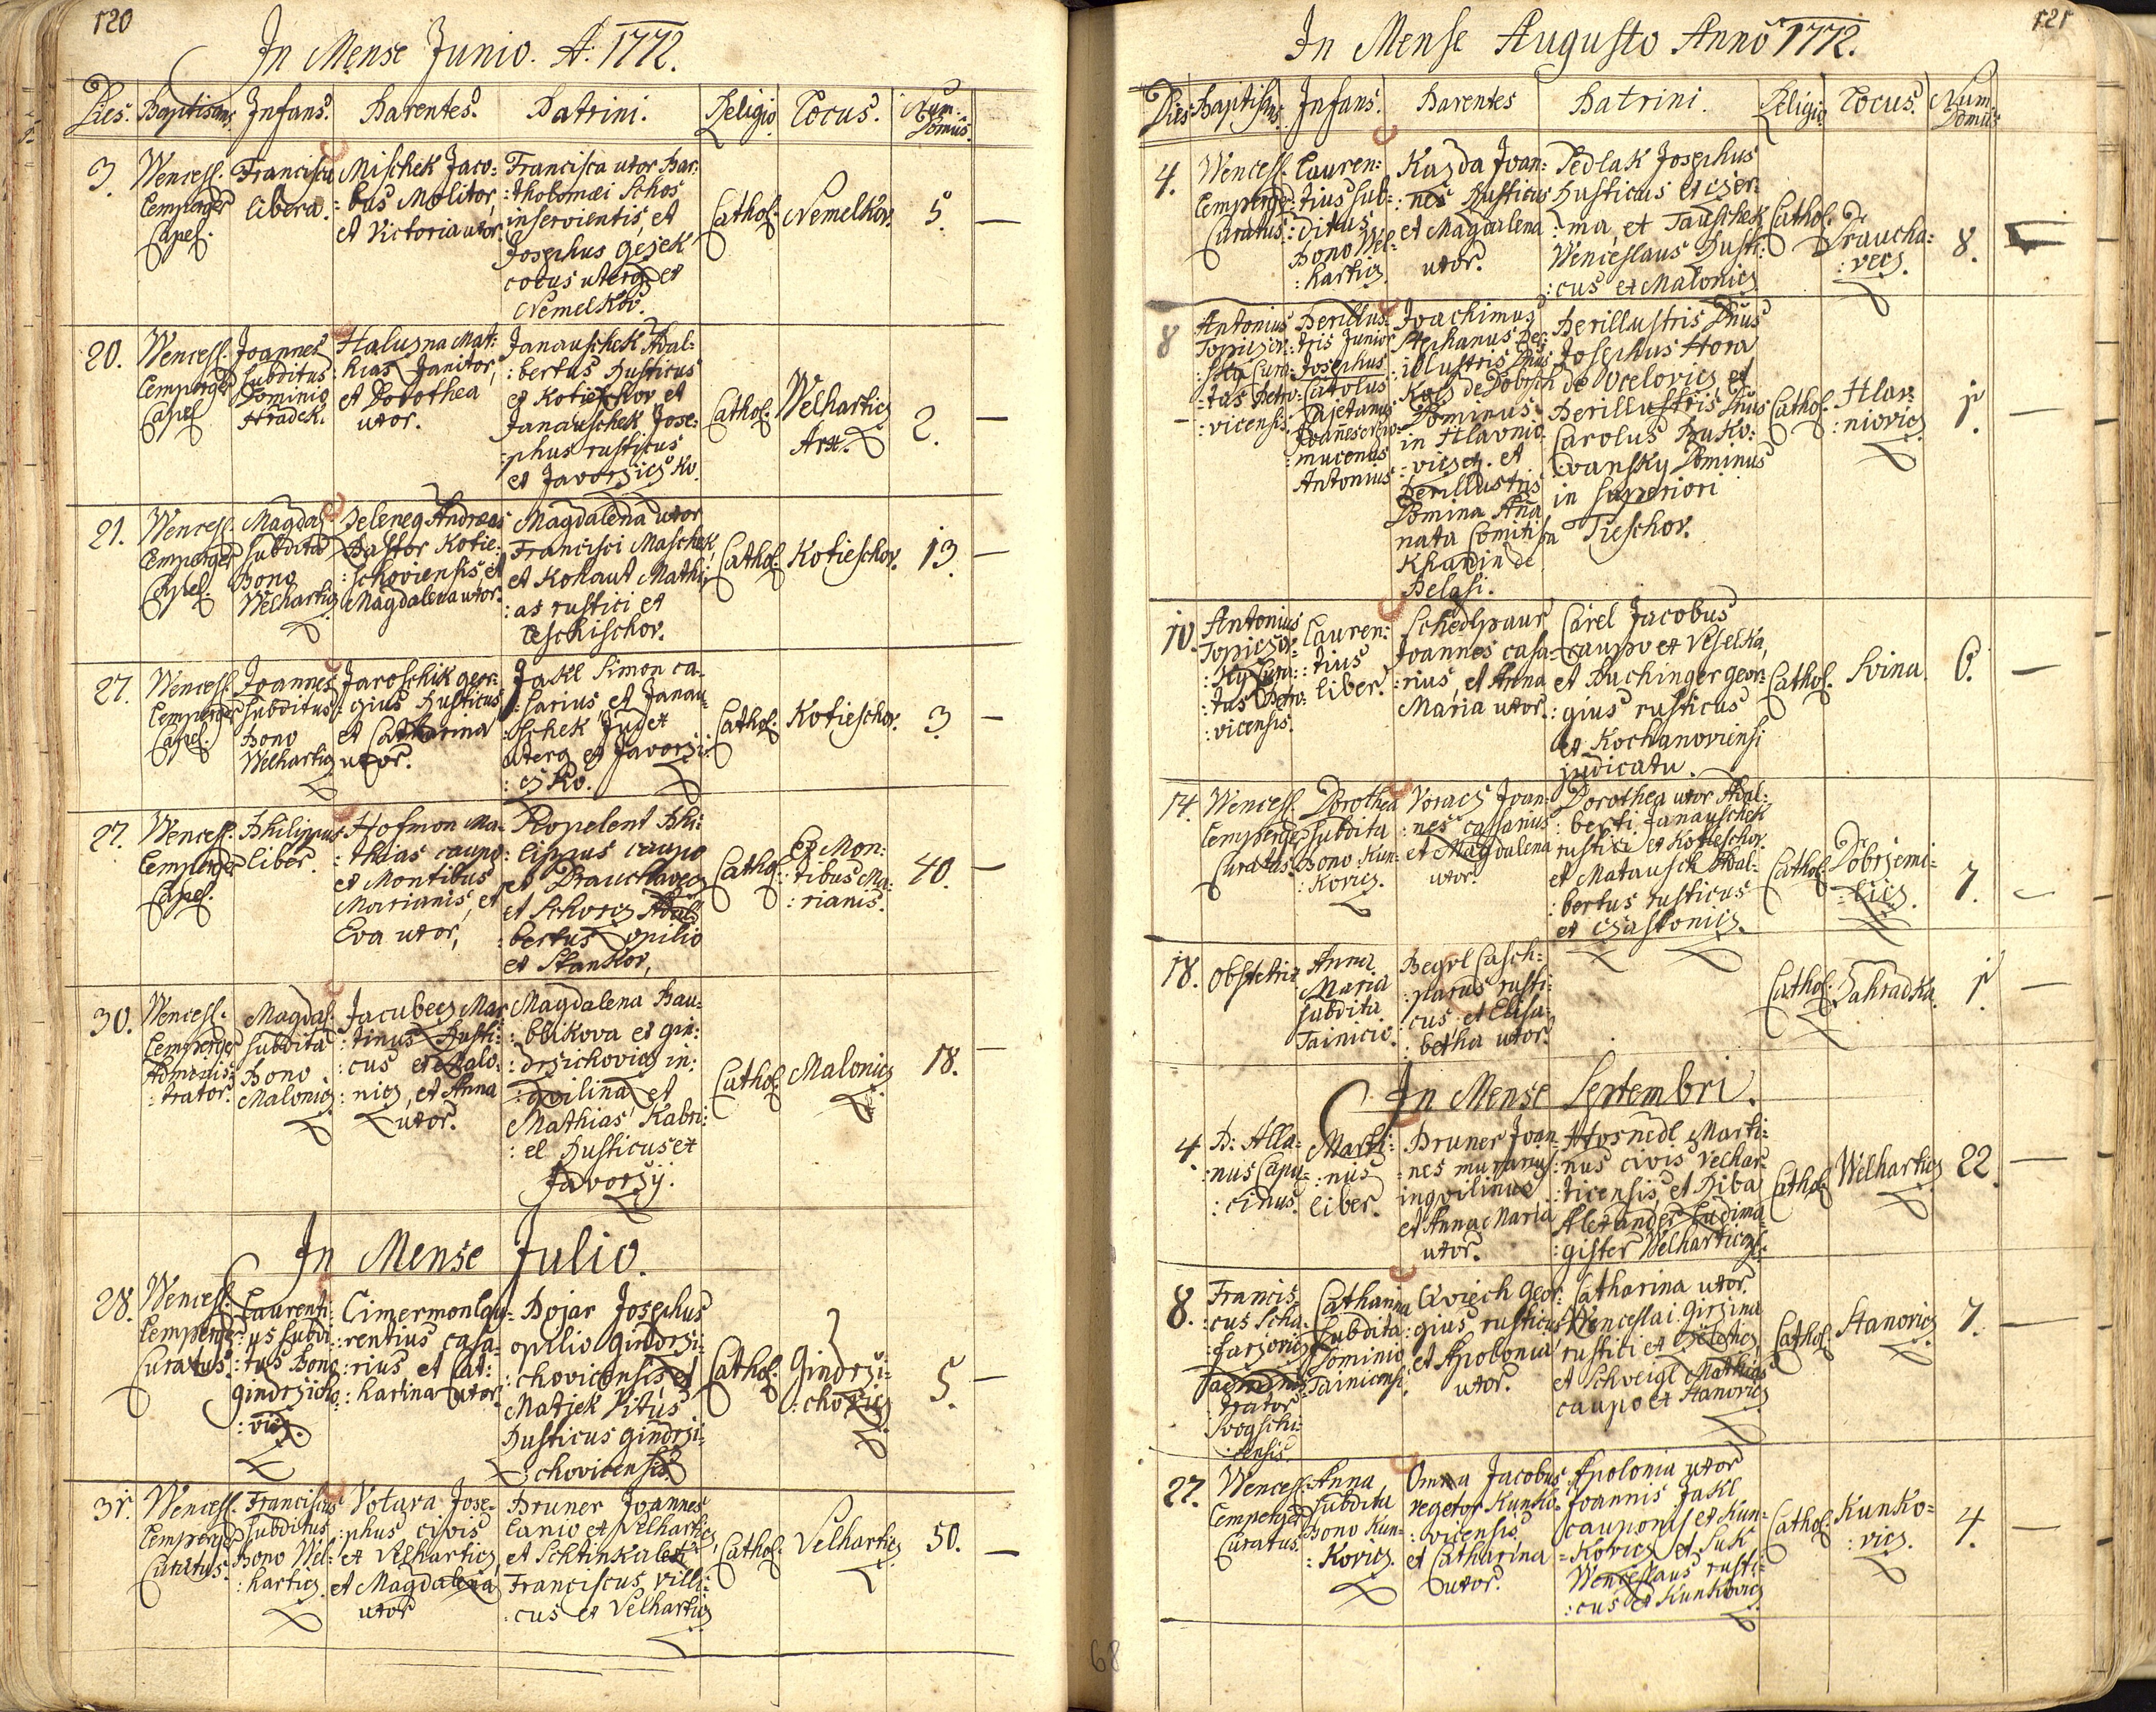 120
In Mense Junio. A: 1772.
Dies. Baptisans. Infans. Parentes. Patrini. Religio. Locus. Num: Domus.
3. Wencesl. Lemperger Capel.
Francisca libera.
Mischek Jaco:
: bus Molitor,
et Victoria uxor.
Francisca uxor Bar:
: tholomæi Schos
inservientis, et
Josephus Gejek
colus uterq ex
Nemelkov.
Cathol. Nemelkov. 5.
20. Wencesl. Lemperger Capel.
Joannes
subditus
Dominio
Hradek.
Halusna Mat:
: hias Janitor,
et Dorothea
uxor.
Janauschek Adal:
: bertus Rusticus
ex Kotieschov et
Janauschek Jose:
: phus rusticus
ex Javorzicz Ko.
Cathol. Welharticz Arx. 2.
21. Wencesl. Lemperger Capel.
Magdal.
subdita
Bono
Welhartiz
Zeleneg Andreas
Pastor Kotie:
: schoviensis, et
Magdalena uxor.
Magdalena uxor
Francisci Maschek,
et Kohaut Mathi:
: as rustici ex
Cathol. Kotieschov. 13.
27. Wencesl. Lemperger Capel.
Joannes
subditus
Bono
Welhartiz
Jaroschik Geor:
: gius Rusticus
et Catharina
uxor.
Jakl Simon ca:
: sarius et Janau:
: schek Jud et
uterq ex Javorzi:
: cz Ko.
Cathol. Kotieschov. 3.
27. Wencesl. Lemperger Capel.
Philippus
liber.
Hofmon Ma:
: thias caupo
ex Montibus
Marianis, et
Eva uxor,
Kopelent Phi:
: lippus caupo
ex Drauchavecz
et Schvercz Adal:
: bertus opilio
ex Stankov,
Cathol. Ex Mon:
: tibus Ma:
: rianis. 40.
30. Wencesl. Lemperger
Adminis:
: trator.
Magdal.
subdita
Bono
Malonicz
Jacubecz Mar:
: tinus Rusti:
: cus ex Malo:
: nicz, et Anna
uxor.
Magdalena Bau:
: blikova ex Gin:
: drzichovicz in:
: qvilina, et
Mathias Kabri:
: el Rusticus ex
Javorzij.
Cathol. Malonicz 18.
In Mense Julio.
28. Wencesl. Lemperger Curatus.
Laurenti:
: us subdi:
: tus Bono
Gindrzicho:
: vicz.
Cimermon Lau:
: rentius casa:
: rius et Cat:
: harina uxor.
Bojar Josephus
opilio Gindrzi:
: chovicensis et
Matjek Vitus
Rusticus Gindrzi:
: chovicensis.
Cathol. Gindrzi:
: chovicz 5.
31. Wencesl. Lemperger Curatus.
Franciscus
subditus
Bono Wel:
: harticz
Votava Jose:
: phus civis
ex Velharticz,
et Magdalena
uxor
Bruner Joannes
Lanio ex Velharticz,
et Schtinka
Franciscus villi:
: cus ex Velharticz
Cathol. Velharticz 50.
121
In Mense Augusto Anno 1772.
Dies Baptisans Infans. Parentes Patrini. Religio Locus. Num: Domus
4. Wencesl. Lemperger Curatus
Lauren:
: tius sub:
: ditus
Bono Wel:
: harticz
Kazda Joan:
: nes Rusticus
et Magdalena
uxor.
Sedlak Josephus
Rusticus ex Czer:
: ma, et Tauschek
Wenceslaus Rusti:
: cus ex Malonicz
Cathol. Draucha:
: vecz. 8.
8 Antonius
Topiczov:
: sky Cura:
: tus Petro:
: vicensis.
Perillus:
: tris Junior
Josephus
Carolus
Cajetanus
Joannes
: mucenus
Antonius
Joachimus
Stephanus Per:
: illustris Dnus
Kocz de Dobrsch
Dominus
in Hlavnio:
: vicz et
Perillustris
Domina Ana
nata Comitissa
Khanin de
Belasi.
Perillustris Dnus
Josephus Hora
de Ocelovicz et
Perillustris Dnus
Carolus Buko:
: vansky Dominus
in Superiori
Tieschov.
Cathol. Hlav:
: niovicz 1.
10. Antonius
Topiczov:
: sky Cura:
: tus Petro:
: vicensis.
Lauren:
: tius
liber.
Schedlpaur
Joannes casa:
: rius, et Anna
Maria uxor.
Carel Jacobus
caupo ex Veselka,
et Puchinger Geor:
: gius rusticus
ex Kochanoviensi
judicatu.
Cathol. Svina. 6.
14. Wencesl. Lemperger Curatus
Dorothea
subdita
Bono Kun:
: kovicz.
Voracz Joan:
: nes casarius
et Magdalena
uxor.
Dorothea uxor Adal:
: berti Janauschek
rustici ex Kotieschov.
et Matausch Adal:
: bertus rusticus
ex Czastonicz.
Cathol. Dobrzemi:
: licz. 7.
18. Obstetrix
Anna
Maria
subdita
Tainicio.
Begrl Casch:
: parus rusti:
: cus, et Elisa:
: betha uxor.
Cathol. Zahradka. 1.
In Mense Septembri.
4. P: Alla:
: nus Capu:
: cinus.
Marti:
: nus
liber.
Bruner Joan:
: nes murarius
inqvilinus
et Anna Maria
uxor.
Hosnedl Marti:
: nus civis Velhar:
: ticensis, et Diba
Alexander Ludima:
: gister Welharticz.
Cathol. Welharticz 22.
8. Francis:
: cus Scha:
: farzovicz
: trator
: censis.
Catharina
subdita
Dominio
Tainicensi.
Qviech Geor:
: gius rusticus
et Apolonia
uxor.
Catharina uxor
Wenceslai Girzina
rustici ex
et Schveigl Mathias
caupo ex Stanovicz
Cathol. Stanovicz 7.
27. Wencesl. Lemperger Curatus.
Anna
subdita
Bono Kun:
: kovicz.
Omna Jacobus
vegetor Kunko:
: vicensis
et Catharina
uxor.
Apolonia uxor
Joannis Jakl
cauponis ex Kun:
: kovicz et Suk
Wenceslaus rusti:
: cus ex Kunkovicz
Cathol. Kunko:
: vicz. 4.
68